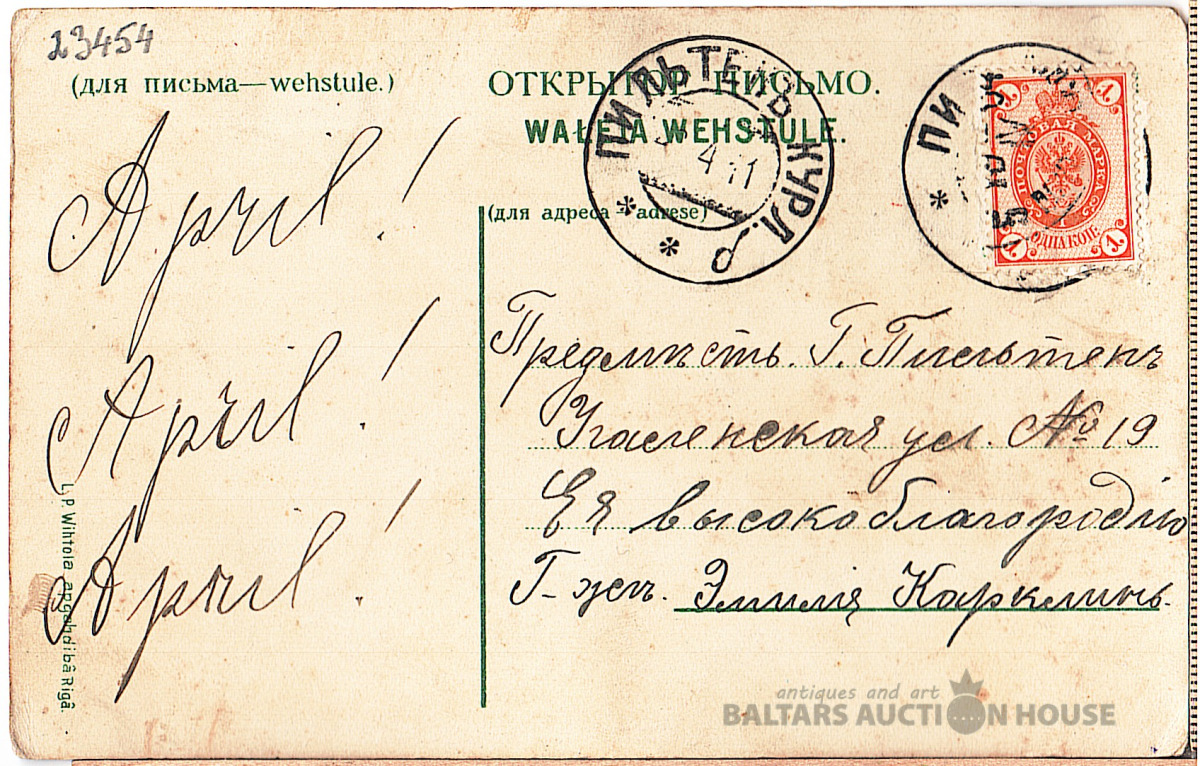 23454
(для письма—wehstule.)
ОТКРЫТОЕ ПИСЬМО.
WAŁEJA WEHSTULE.
(для адреса – adrese)
ПИЛЬТЕНЪ КУРЛ.
4 11
ПИ
ПОЧТОВАЯ МАРКА
ОДНА КОП.
1 1 1 1
April!
April!
April!
Предмѣсть. Г. Пильтенъ
Угаленская ул. № 19
Ея высокоблагородію
Г-жѣ. Эмилія Карклинь.
L. P. Wihtola apgahdibâ Rigâ.
antiques and art
BALTARS AUCTION HOUSE